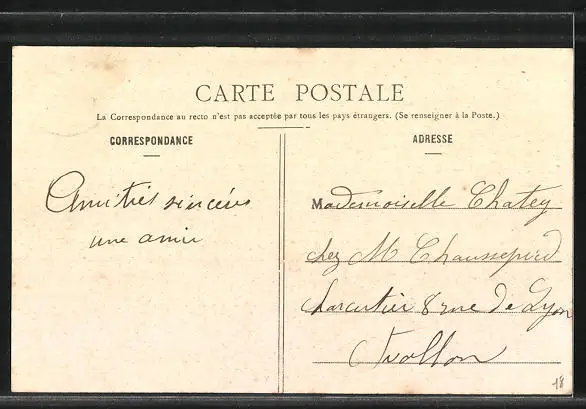 CARTE POSTALE
La Correspondance au recto n'est pas acceptée par tous les pays étrangers. (Se renseigner à la Poste.)
CORRESPONDANCE
Amitiés sincères
une amie
ADRESSE
Mademoiselle Chatey
chez M Chaussepied
charcutier 8 rue de Lyon
Avallon
18